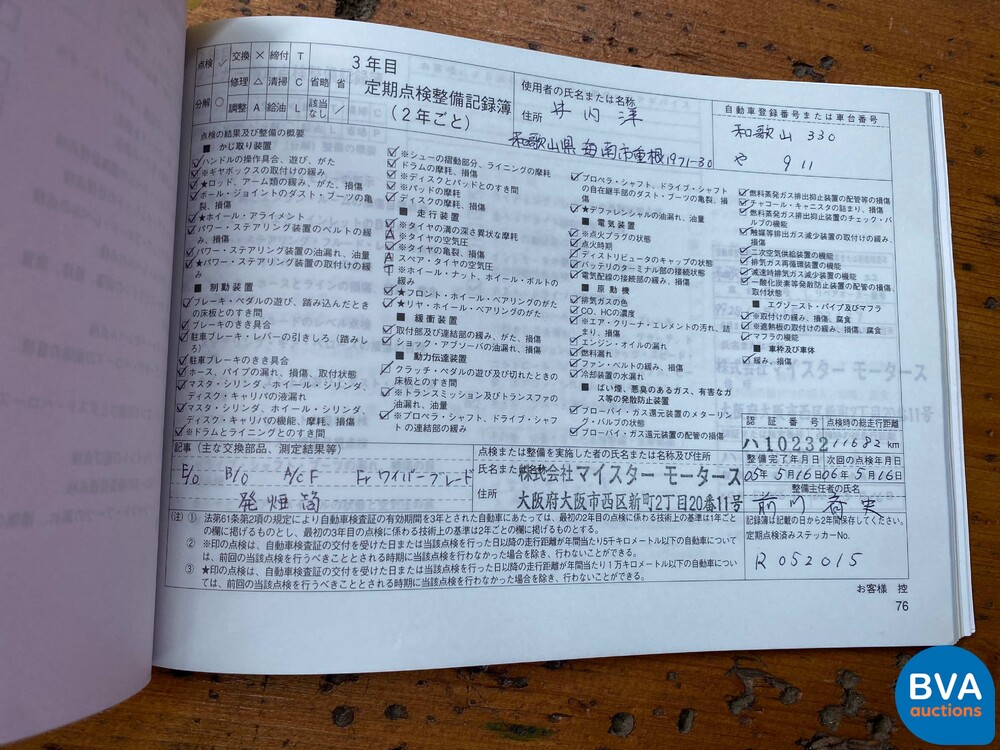 点検 ✓ 交換 × 締付 T
修理 △ 清掃 C 省略 省
分解 ○ 調整 A 給油 L 該当なし ／
3年目
定期点検整備記録簿
(2年ごと)
使用者の氏名または名称
住所
和歌山県海南市重根1971-30
自動車登録番号または車台番号
和歌山 330
や 911
点検の結果及び整備の概要
■ かじ取り装置
ハンドルの操作具合、遊び、がた
※ギヤボックスの取付けの緩み
★ロッド、アーム類の緩み、がた、損傷
ボール・ジョイントのダスト・ブーツの亀
裂、損傷
★ホイール・アライメント
パワー・ステアリング装置のベルトの緩
み、損傷
パワー・ステアリング装置の油漏れ、油量
★パワー・ステアリング装置の取付けの緩
み
■ 制動装置
ブレーキ・ペダルの遊び、踏み込んだとき
の床板とのすき間
ブレーキのきき具合
駐車ブレーキ・レバーの引きしろ(踏みし
ろ)
駐車ブレーキのきき具合
ホース、パイプの漏れ、損傷、取付状態
マスタ・シリンダ、ホイール・シリンダ、
ディスク・キャリパの液漏れ
マスタ・シリンダ、ホイール・シリンダ、
ディスク・キャリパの機能、摩耗、損傷
※ドラムとライニングとのすき間
※シューの摺動部分、ライニングの摩耗
ドラムの摩耗、損傷
※ディスクとパッドとのすき間
※パッドの摩耗
ディスクの摩耗、損傷
■ 走行装置
※タイヤの溝の深さ異状な摩耗
A ※タイヤの空気圧
※タイヤの亀裂、損傷
A スペア・タイヤの空気圧
T ※ホイール・ナット、ホイール・ボルトの
緩み
★フロント・ホイール・ベアリングのがた
★リヤ・ホイール・ベアリングのがた
■ 緩衝装置
取付部及び連結部の緩み、がた、損傷
ショック・アブソーバの油漏れ、損傷
■ 動力伝達装置
クラッチ・ペダルの遊び及び切れたときの
床板とのすき間
※トランスミッション及びトランスファの
油漏れ、油量
※プロペラ・シャフト、ドライブ・シャフ
トの連結部の緩み
プロペラ・シャフト、ドライブ・シャフト
の自在継手部のダスト・ブーツの亀裂、損
傷
★デファレンシャルの油漏れ、油量
■ 電気装置
※点火プラグの状態
点火時期
ディストリビュータのキャップの状態
バッテリのターミナル部の接続状態
電気配線の接続部の緩み、損傷
■ 原動機
排気ガスの色
CO、HCの濃度
※エア・クリーナ・エレメントの汚れ、詰
まり、損傷
エンジン・オイルの漏れ
燃料漏れ
ファン・ベルトの緩み、損傷
冷却装置の水漏れ
■ ばい煙、悪臭のあるガス、有害なガ
ス等の発散防止装置
ブローバイ・ガス還元装置のメターリン
グ・バルブの状態
ブローバイ・ガス還元装置の配管の損傷
燃料蒸発ガス排出抑止装置の配管等の損傷
チャコール・キャニスタの詰まり、損傷
燃料蒸発ガス排出抑止装置のチェック・バ
ルブの機能
触媒等排出ガス減少装置の取付けの緩み、
損傷
二次空気供給装置の機能
排気ガス再循環装置の機能
減速時排気ガス減少装置の機能
一酸化炭素等発散防止装置の配管の損傷、
取付状態
■ エグゾースト・パイプ及びマフラ
※取付けの緩み、損傷、腐食
※遮熱板の取付けの緩み、損傷、腐食
マフラの機能
■ 車枠及び車体
緩み、損傷
認証番号 点検時の総走行距離
ハ10232 11682 km
記事(主な交換部品、測定結果等)
E/o B/o A/C F Fr ワイパーブレード
点検または整備を実施した者の氏名または名称及び住所
氏名または名称 株式会社マイスター モータース
住所 大阪府大阪市西区新町2丁目20番11号
整備完了年月日 次回の点検年月日
05年5月16日 06年5月16日
整備主任者の氏名
記録簿は記載の日から2年間保存してください。
定期点検済みステッカーNo.
R 052015
(注) ① 法第61条第2項の規定により自動車検査証の有効期間を3年とされた自動車にあたっては、最初の2年目の点検に係わる技術上の基準は1年ごと
の欄に掲げるものとし、最初の3年目の点検に係わる技術上の基準は2年ごとの欄に掲げるものとする。
② ※印の点検は、自動車検査証の交付を受けた日または当該点検を行った日以降の走行距離が年間当たり5千キロメートル以下の自動車について
は、前回の当該点検を行うべきこととされる時期に当該点検を行わなかった場合を除き、行わないことができる。
③ ★印の点検は、自動車検査証の交付を受けた日または当該点検を行った日以降の走行距離が年間当たり1万キロメートル以下の自動車につい
ては、前回の当該点検を行うべきこととされる時期に当該点検を行わなかった場合を除き、行わないことができる。
お客様 控
76
BVA
auctions